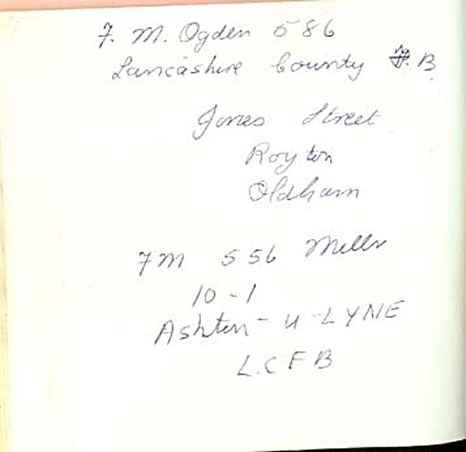 F. M. Ogden 586
Lancashire County F.B
Jones Street
Royton
Oldham
FM 556 Mills
10-1
Ashton-U-LYNE
L.C F B